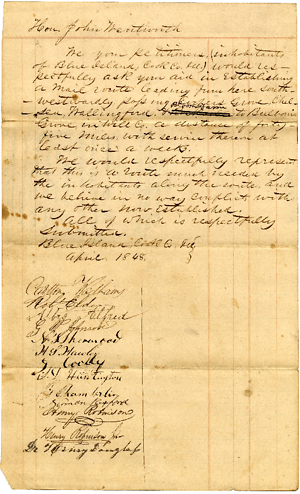 Hon John Wentworth
We your petitioners, (inhabitants
of Blue Island, Cook Co. Ill) would res-
pectfully ask your aid in establishing
a mail route leading from here South-
westwardly passing Grove, Chel-
sea, Wallingford, to
Grove in Will Co. a distance of forty
five miles, with service thereon at
least once a week.
We would respectfully represent
that this is a route much needed by
the inhabitants along the route, and
we believe in no way conflicts with
any other now established.
all of which is respectfully
submitted.
Blue Island Cook Co Ill
April 1848.
Carlton
Alfred
Johnson
Sherwood
H S
Huntington
Chamberlin
Henry Robinson
Henry Robinson Jr